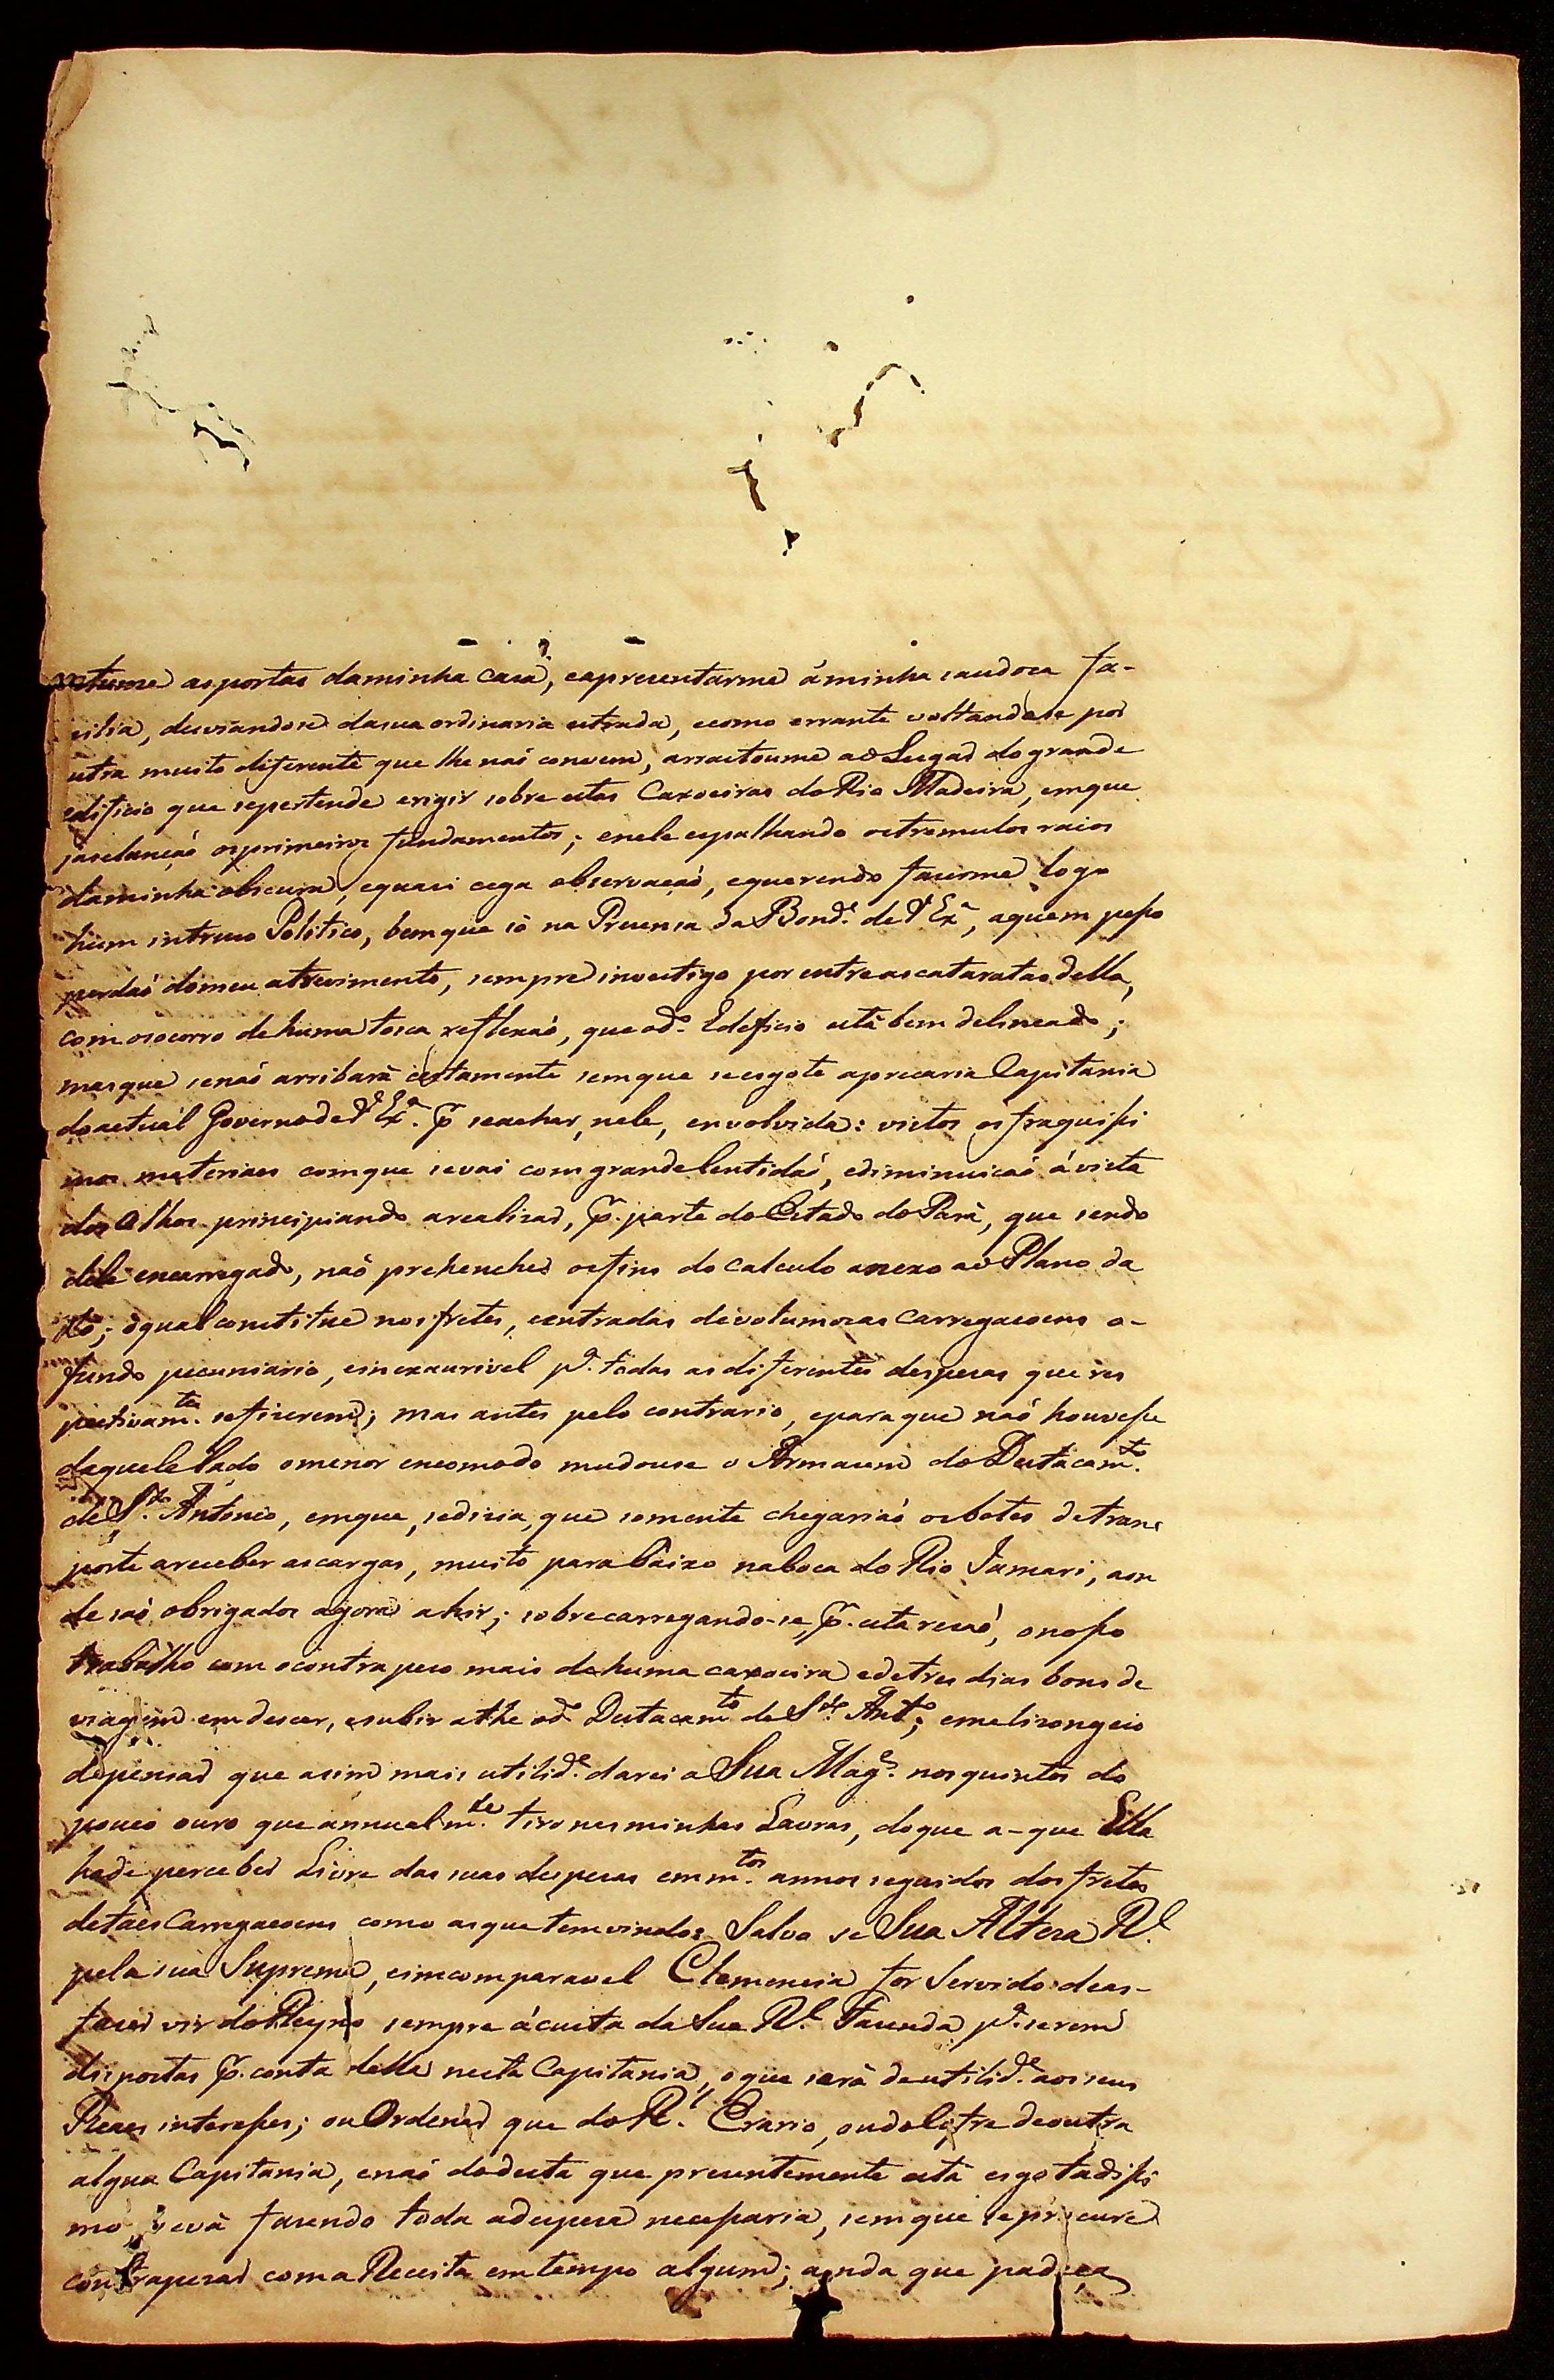 as portas daminha casa, eapresentarme áminha saudosa fa-
milia, desviandose dasua ordinaria estrada, ecomo errante voltandose por
outra muito diferente que lhe naõ convem, arrastoume ao Lugar do grande
edificio que sepertende erigir sobre estas Caxoeiras do Rio Madeira, emque
jáselançaõ osprimeiros fundamentos; enele espalhando ostremulos raios
daminha obscura, equasi cega observaçaõ, equerendo faserme logo
hum intruso Politico, bemque só na Presensa da Bond.e de V Ex.a, aquem pesso
perdaõ domeu atrevimento, sempre investigo por entre as cataratas della,
com osocorro de huma tosca reflexaõ, que od.o Edeficio está bem delineado;
masque senaõ arribará certamente semque seesgote aprecaria Capitania
doactual Governo de V. Ex.a p.r seachar, nele, envolvida: vistos os fraquissi
mos materiaes comque sevai com grande lentidaõ, ediminuiçaõ ávista
dos Olhos principiando arealisar, p.r parte do Estado do Pará, que sendo
dele encarregado, naõ prehencher osfins do calculo anexo ao Plano da
; oqual constitue nos fretes, eentradas devolumosas Carregaçoens o-
fundo pecuniario, einexaurivel p.a todas as diferentes despesas que res
pectivam.te sefiserem; mas antes pelo contrario, eparaque naõ houvesse
daquele lado omenor encomodo mudouse o Armasem do Destacam.to
de S.to Antonio, emque, sedisia, que somente chegariaõ osbotes detrans
porte areceber as cargas, muito para baixo naboca do Rio Jamari, aon
de saõ obrigados agora ahir; sobrecarregando-se, p.r esta resaõ, onosso
trabalho com ocontrapeso mais dehuma caxoeira edetres dias bons de
viagem em descer, esubir athe od.o Destacam.to de S.to Ant.o; emelisongeio
depensar que asim mais utilid.e darei a Sua Mag.e nos quintos do
pouco ouro que annualm.te tiro nasminhas Lavras, doque a-que Ella
hade perceber Livre das suas despesas em m.tos annos seguidos dos fretes
detaes Carregaçoens como asque temvindo: Salvo se Sua Altesa R.l
pela sua Suprema, eimcomparavel Clemencia for Servido deas-
faser vir do Reyno sempre ácusta da Sua R.l Fasenda p.a serem
dispostas p.r conta della nesta Capitania, oque será deutilid.e aosseus
Reaes interesses; ou Ordenar que do R.l Erario, ou deoutra
algua Capitania, enaõ dadesta que presentemente está esgotadissi
mo, sevá fasendo toda adespesa necessaria, semque seprocure
contrapesar coma Receita emtempo algum; ainda que padeça